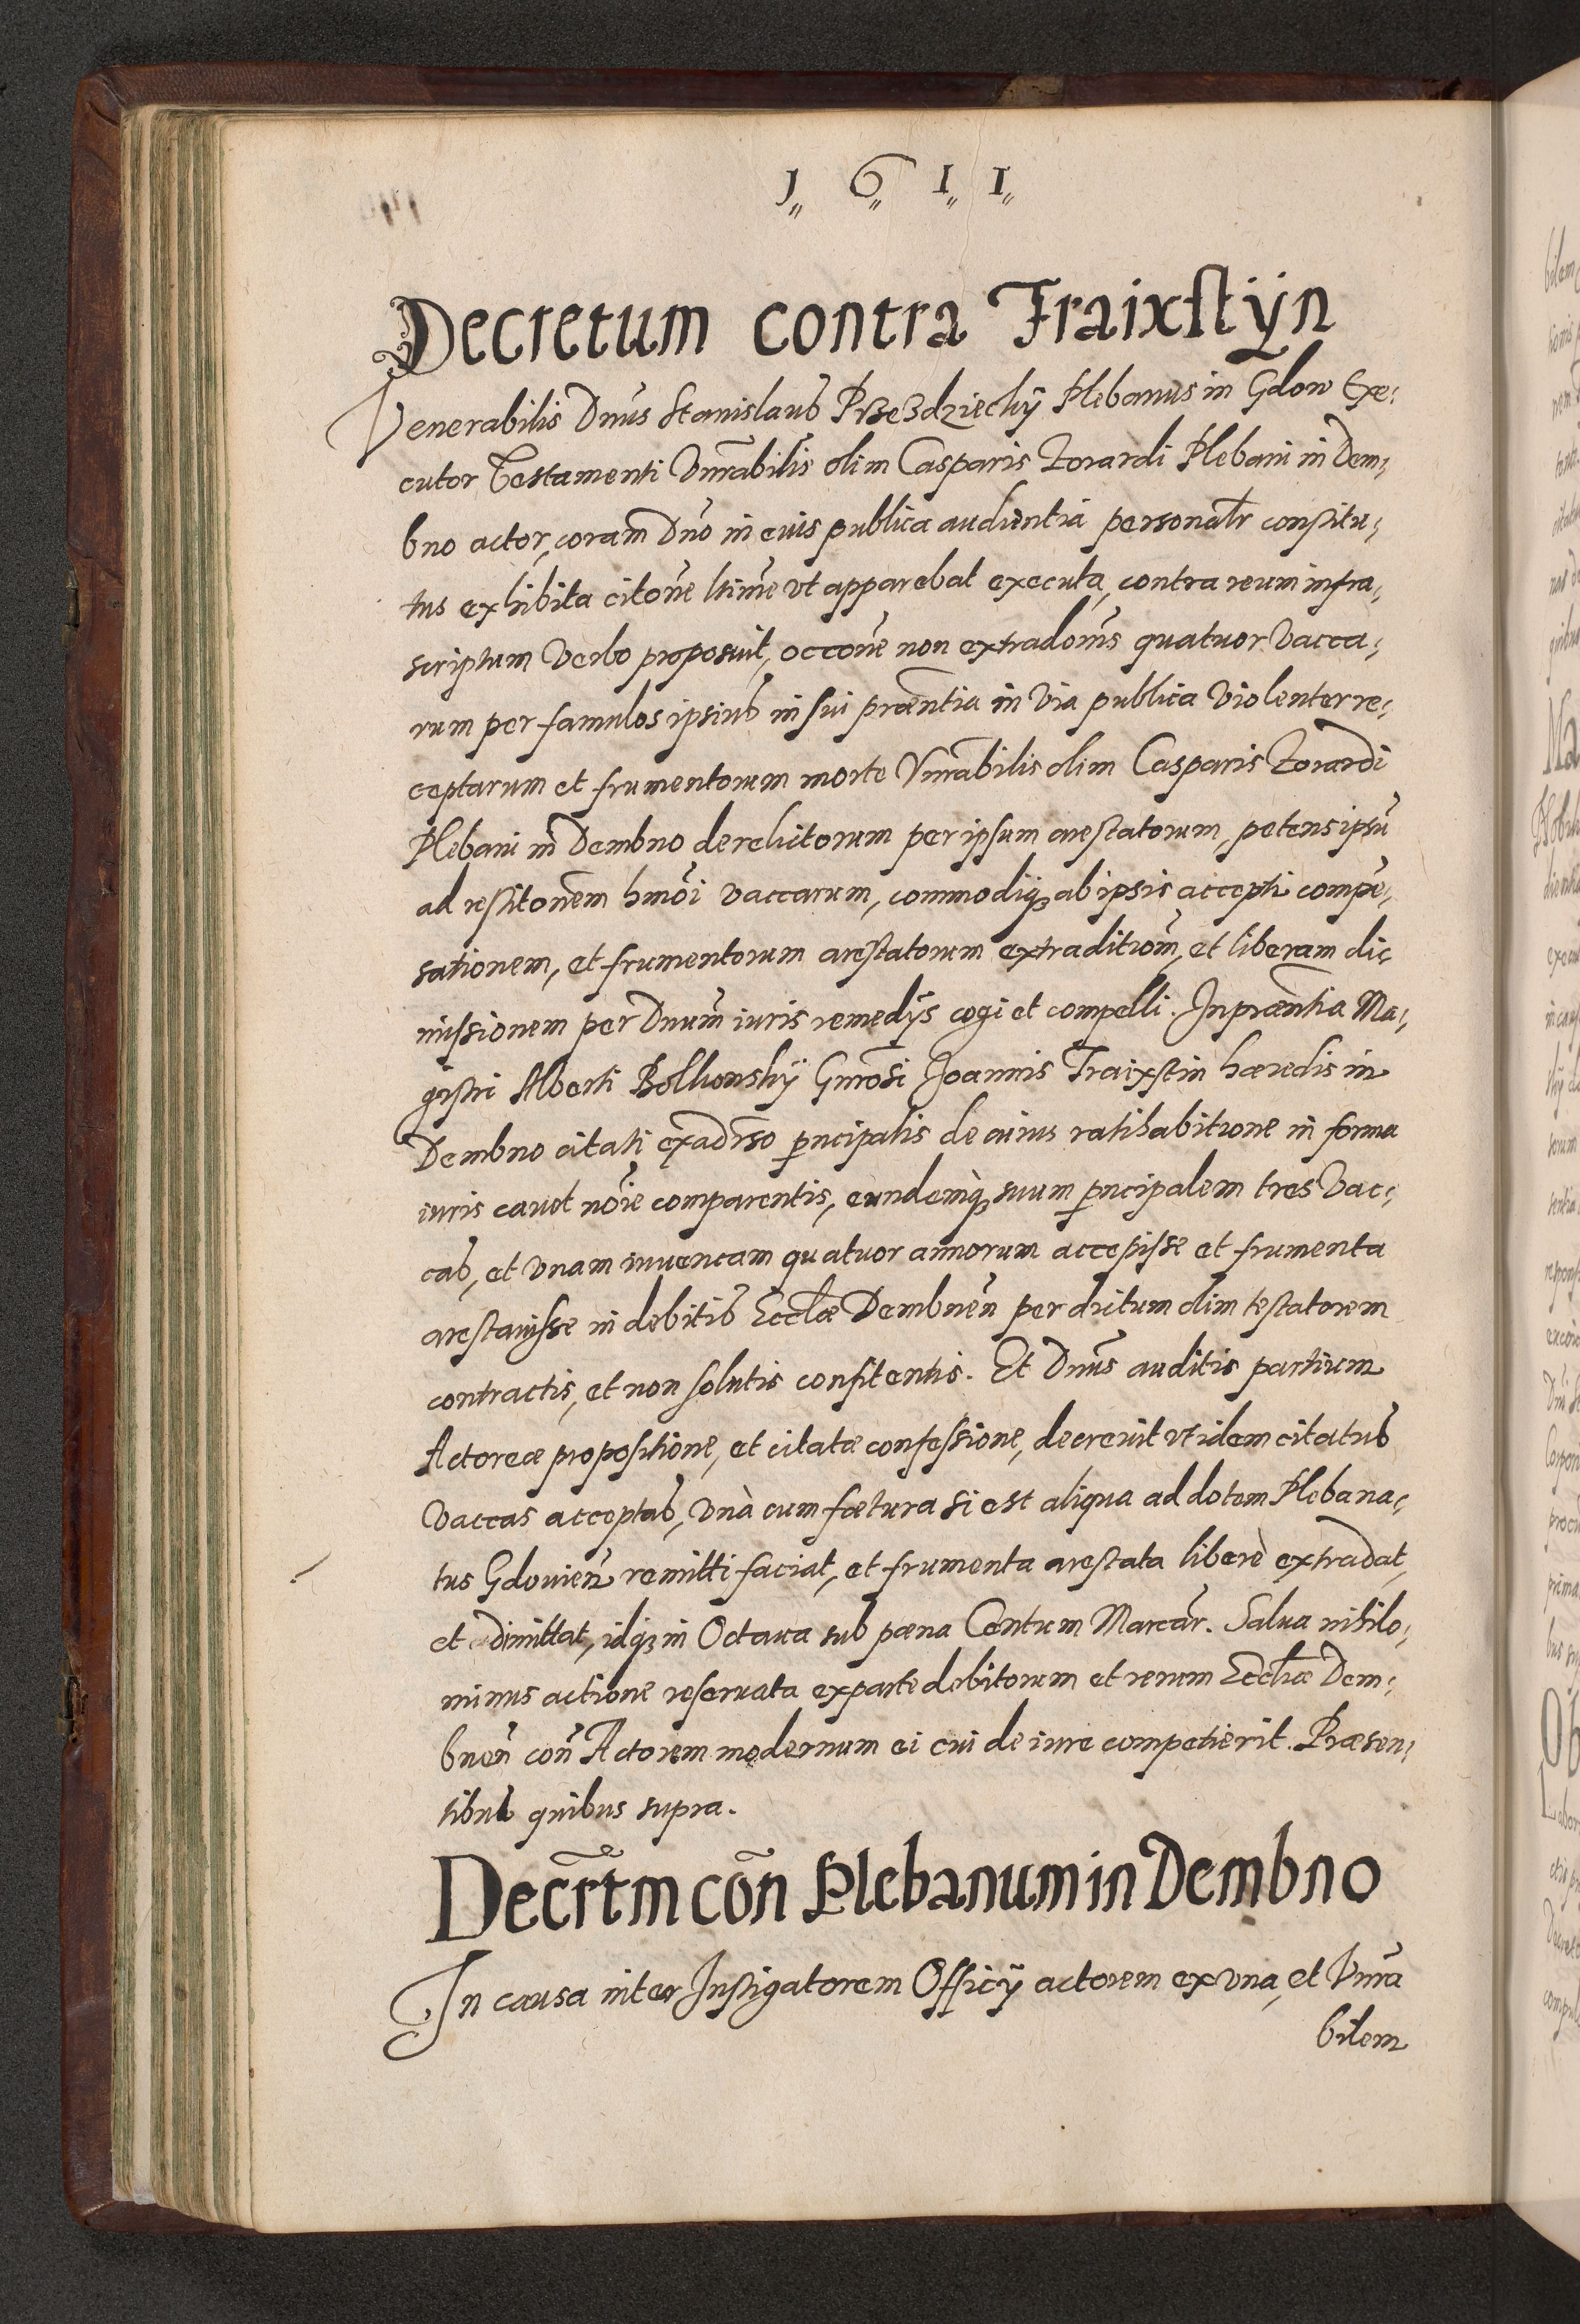 1611
Decretum contra Traixstÿn
Venerabilis Dnũs Stanislaus Przezdziechÿ Plebanus in Gdow Exe,
cutor Testamenti Vnrãbilis olim Casparis Zorardi Plebani in Dem,
bno actor, coram Dnõ in eius publica audientia personalr̃ constitu,
tus exhibita citõne ltimẽ vt apparebat executa, contra reum infra,
scriptum verbo proposuit, occõne non extradonĩs quatuor vacca,
rum per famulos ipsius in sui præñtia in via publica violenter re,
ceptarum et frumentorum morte Vnrãbilis olim Casparis Zorardi
Plebani in Dembno derelictorum per ipsum arestatorum, petens ipsũ
ad restitonẽm hmõi vaccarum, commodiq₃ ab ipsis accepti compẽ,
sationem, et frumentorum arestatorum extraditiom̃, et liberam di,
missionem per Dnum̃ iuris remedÿs cogi et compelli. In præñtia Ma,
gistri Alberti Bolkonskÿ Gnrõsi Joannis Traixstin hæredis in
Dembno citati exadrs̃o prñcipalis de cuius ratihabitione in forma
iuris cauet noĩe comparentis, eundemq́₃ suum prñcipalem tres vac,
cas, et vnam iuuencam quatuor annorum accepisse et frumenta
arestauisse in debitis Eccl̃æ Dembnen̄ per dictum olim testatorem
contractis, et non solutis confitentis. Et Dnũs auditis partium
Actoreæ propositione, et citatæ confessione, decreuit vt idem citatus
vaccas acceptas, vnà cum fœtura si est aliqua ad dotem Plebana,
tus Gdouien̄ remitti faciat, et frumenta arestata liberè extradat,
et dimittat, idq₃ in Octaua sub pœna Centum Marcar̃. Salua nihilo,
minus actione reseruata ex parte debitorum et rerum Eccl̃iæ Dem,
bnen̄ con̄ Actorem modernum ei cui de iure competierit. Præsen,
tibus quibus supra.
Decrt̃m con̄ Plebanum in Dembno
In causa inter Instigatorem Officÿ actorem ex vna, et Vnrã
bilem